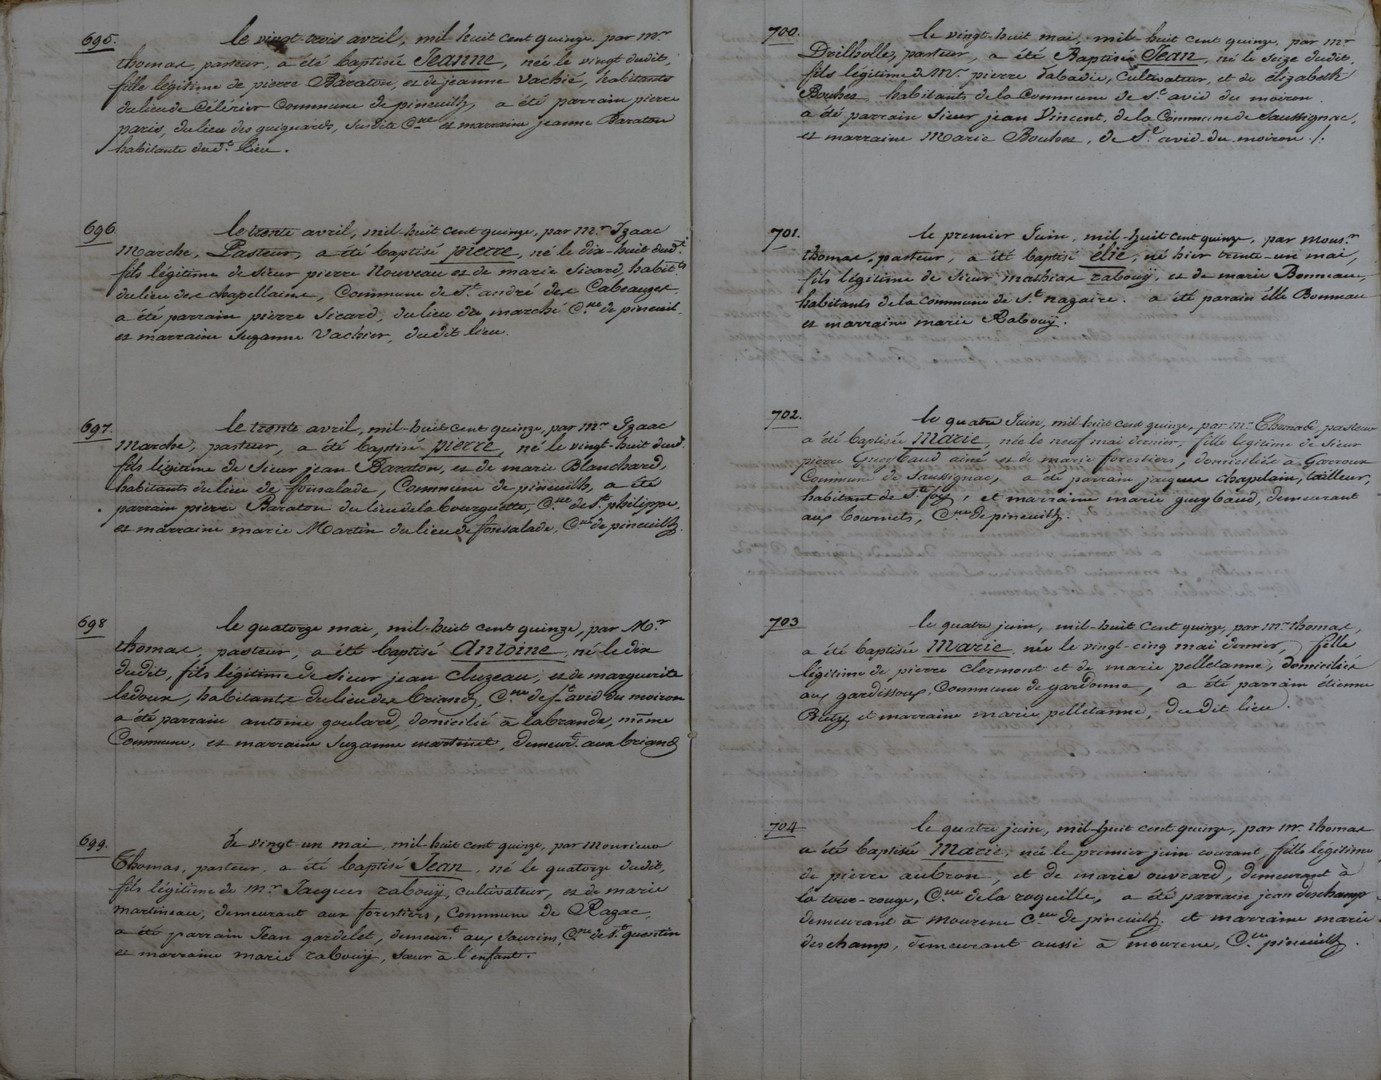 695.
le vingt-trois avril, mil huit cent quinze, par mr
thomas, pasteur, a été baptisée Jeanne, née le vingt dudit,
fille légitime de pierre Baraton, et de jeanne Vachié, habitants
du lieu de Célérier Commune de pineuilh, a été parrain pierre
paris, du lieu des guignards, susdia Cne et marraine jeanne Baraton
habitante du dt lieu.
696
le trente avril, mil-huit cent quinze, par mr Izaac
Marche, Pasteur, a été baptisé pierre, né le dix-huit dudt
fils légitime de Sieur pierre Nouveau et de marie Sicard, habitts
du lieu des chapellains, Commune de St andré des Cabauzes
a été parrain pierre Sicard, du lieu du marché Cne de pineuil
et marraine Suzanne Vachier, dudit lieu.
697.
le trente avril, mil-huit cent quinze, par mr Izaac
Marche, pasteur, a été baptisé pierre, né le vingt-huit dudt
fils légitime de Sieur jean Baraton, et de marie Blanchard,
habitants du lieu de fonsalade, Commune de pineuilh, a été
parrain pierre Baraton du lieu de la bourguette, Cne de St philippe,
et marraine marie Martin du lieu de fonsalade, Cne de pineuilh.
698
le quatorze mai, mil-huit cent quinze, par Mr
thomas, pasteur, a été baptisé Antoine, né le dix
dudit, fils légitime de Sieur jean Cluzeau, et de marguerite
ledoux, habitants du lieu des briands, Cne de St avid du moiron
a été parrain antoine goulard, domicilié à labrande, même
Commune, et marraine Suzanne martinet, demeurt aux briands
699.
le vingt-un mai, mil-huit cent quinze, par monsieur
Thomas, pasteur, a été baptisé Jean, né le quatorze dudit,
fils légitime de mr Jacques rabouÿ, cultivateur, et de marie
martineau, demeurant aux forestiers, Commune de Razac,
a été parrain Jean gardelet, demeurt aux Saurins, Cne de St quentin
et marraine marie rabouÿ, Sœur à l'enfant.
700.
le vingt-huit mai, mil-huit cent quinze, par mr
Drilholles, pasteur, a été Baptisé Jean, né le Seize dudit,
fils légitime de Mr pierre labadie, Cultivateur, et de élizabeth
Bouhes habitants de la Commune de St avid du moiron.
a été parrain Sieur jean Vincent, de la Commune de Saussignac,
et marraine Marie Bouhes, de St avid-du-moiron ./.
701.
le premier Juin, mil-huit cent quinze, par monsr
thomas, pasteur, a été baptisé élie, né hier trente-un mai,
fils légitime de Sieur mathias rabouÿ, et de marie Bonneau,
habitants de la Commune de St nazaire. a été parain élie Bonneau
et marraine marie Rabouÿ.
702.
le quatre Juin, mil-huit cent quinze, par mr Thomas, pasteur
a été baptisée Marie, née le neuf mai dernier, fille légitime de Sieur
pierre Guybaud ainé et de marie forestiers, domiciliés à Garroux
Commune de Saussignac, a été parrain jacques chapelain, tailleur,
habitant de Ste foy, et marraine marie guybaud, demeurant
aux bournets, Cne de pineuilh.
703
le quatre juin, mil-huit cent quinze, par mr thomas,
a été baptisée Marie, née le vingt-cinq mai dernier, fille
légitime de pierre Clermont et de marie pelletanne, domiciliés
aux gardissoux, Commune de gardonne, a été parrain étienne
Bretz, et marraine marie pelletanne, du dit lieu.
704
le quatre juin, mil-huit cent quinze, par mr thomas
a été baptisée Marie, née le premier juin courant, fille légitime
de pierre aubron, et de marie ouvrard, demeurant à
la tour-rouge, Cne de la roquille, a été parrain jean deschamp
demeurant à mourene Cne de pineuilh. et marraine marie
deschamp, demeurant aussi à mourene, Cne pineuilh.